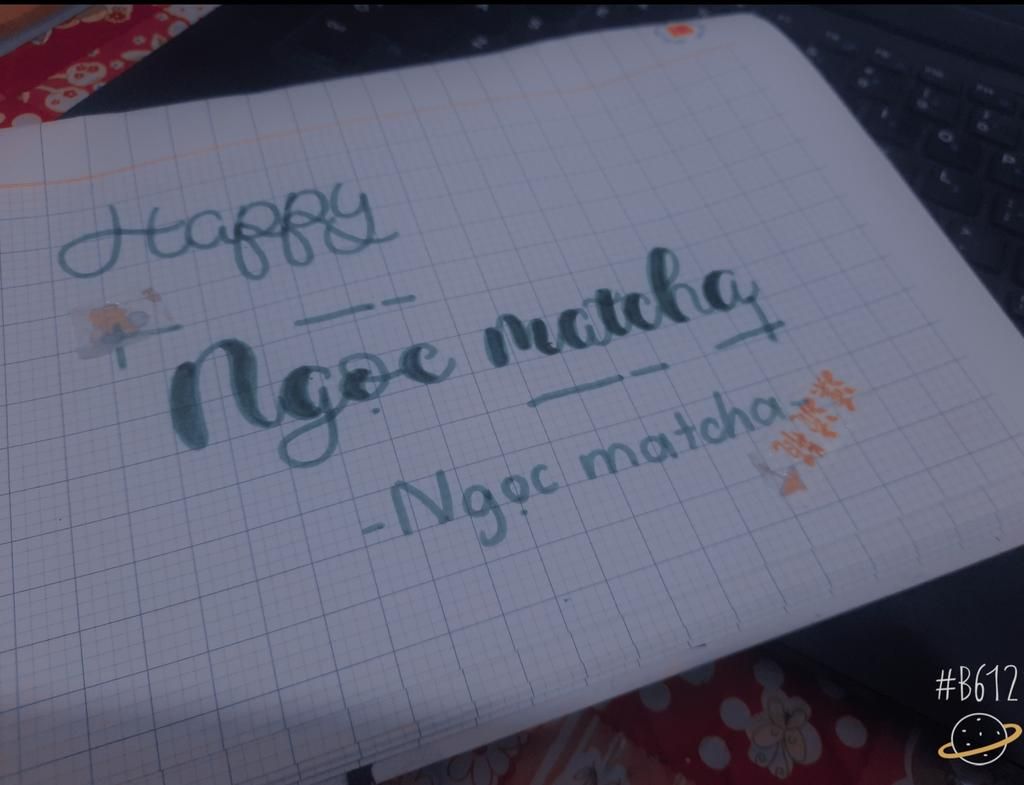 Happy
Ngọc matcha
- Ngọc matcha -
#B612